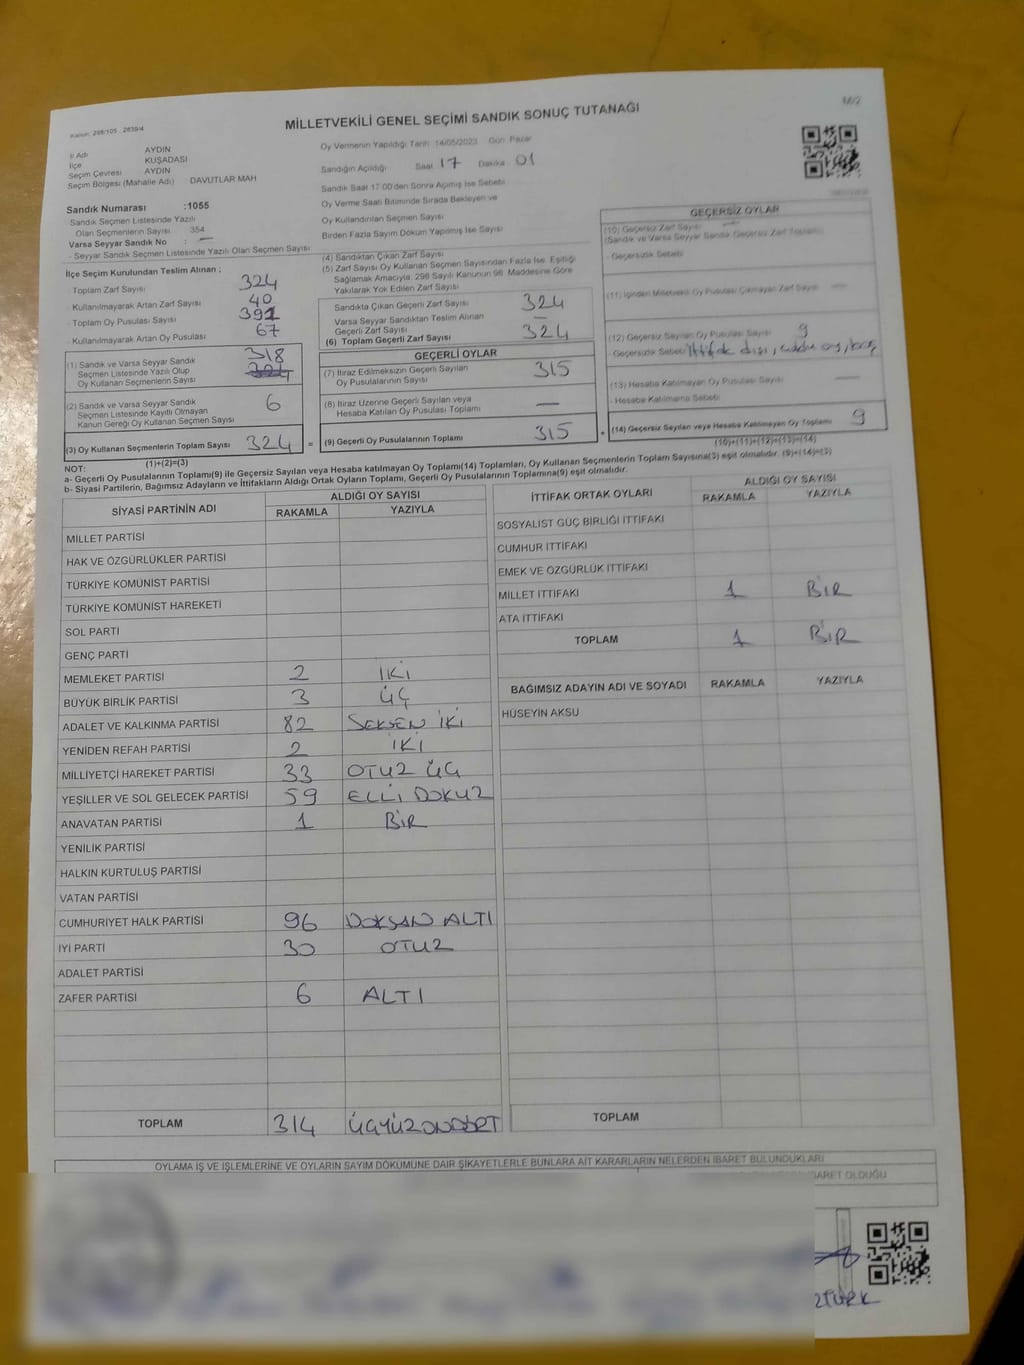 M/2
Kanun: 298/105 , 2839/4
MİLLETVEKİLİ GENEL SEÇİMİ SANDIK SONUÇ TUTANAĞI
İl Adı AYDIN
İlçe KUŞADASI
Seçim Çevresi AYDIN
Seçim Bölgesi (Mahalle Adı) DAVUTLAR MAH
Sandık Numarası :1055
Sandık Seçmen Listesinde Yazılı
Olan Seçmenlerin Sayısı 354
Varsa Seyyar Sandık No : —
- Seyyar Sandık Seçmen Listesinde Yazılı Olan Seçmen Sayısı
Oy Vermenin Yapıldığı Tarih :14/05/2023 Gün: Pazar
Sandığın Açıldığı Saat 17 Dakika 01
Sandık Saat 17:00'den Sonra Açılmış İse Sebebi
Oy Verme Saati Bitiminde Sırada Bekleyen ve
Oy Kullandırılan Seçmen Sayısı
Birden Fazla Sayım Döküm Yapılmış İse Sayısı
İlçe Seçim Kurulundan Teslim Alınan ;
- Toplam Zarf Sayısı 324
- Kullanılmayarak Artan Zarf Sayısı 40
- Toplam Oy Pusulası Sayısı 391
- Kullanılmayarak Artan Oy Pusulası 67
(1) Sandık ve Varsa Seyyar Sandık
Seçmen Listesinde Yazılı Olup
Oy Kullanan Seçmenlerin Sayısı 318
324
(2) Sandık ve Varsa Seyyar Sandık
Seçmen Listesinde Kayıtlı Olmayan
Kanun Gereği Oy Kullanan Seçmen Sayısı 6
(3) Oy Kullanan Seçmenlerin Toplam Sayısı 324 =
(1)+(2)=(3)
(4) Sandıktan Çıkan Zarf Sayısı
(5) Zarf Sayısı Oy Kullanan Seçmen Sayısından Fazla İse, Eşitliği
Sağlamak Amacıyla, 298 Sayılı Kanunun 98. Maddesine Göre
Yakılarak Yok Edilen Zarf Sayısı
Sandıkta Çıkan Geçerli Zarf Sayısı 324
Varsa Seyyar Sandıktan Teslim Alınan
Geçerli Zarf Sayısı —
(6) Toplam Geçerli Zarf Sayısı 324
GEÇERLİ OYLAR
(7) İtiraz Edilmeksizin Geçerli Sayılan
Oy Pusulalarının Sayısı 315
(8) İtiraz Üzerine Geçerli Sayılan veya
Hesaba Katılan Oy Pusulası Toplamı —
(9) Geçerli Oy Pusulalarının Toplamı 315 +
GEÇERSİZ OYLAR
(10) Geçersiz Zarf Sayısı —
(Sandık ve Varsa Seyyar Sandık Geçersiz Zarf Toplamı)
- Geçersizlik Sebebi
(11) İçinden Milletvekili Oy Pusulası Çıkmayan Zarf Sayısı —
(12) Geçersiz Sayılan Oy Pusulası Sayısı 9
- Geçersizlik Sebebi İttifak dışı,
(13) Hesaba Katılmayan Oy Pusulası Sayısı —
- Hesaba Katılmama Sebebi
(14) Geçersiz Sayılan veya Hesaba Katılmayan Oy Toplamı 9
(10)+(11)+(12)+(13)=(14)
NOT:
a- Geçerli Oy Pusulalarının Toplamı(9) ile Geçersiz Sayılan veya Hesaba katılmayan Oy Toplamı(14) Toplamları, Oy Kullanan Seçmenlerin Toplam Sayısına(3) eşit olmalıdır. (9)+(14)=(3)
b- Siyasi Partilerin, Bağımsız Adayların ve İttifakların Aldığı Ortak Oyların Toplamı, Geçerli Oy Pusulalarının Toplamına(9) eşit olmalıdır.
SİYASİ PARTİNİN ADI ALDIĞI OY SAYISI
RAKAMLA YAZIYLA
MİLLET PARTİSİ
HAK VE ÖZGÜRLÜKLER PARTİSİ
TÜRKİYE KOMÜNİST PARTİSİ
TÜRKİYE KOMÜNİST HAREKETİ
SOL PARTİ
GENÇ PARTİ
MEMLEKET PARTİSİ 2 İKİ
BÜYÜK BİRLİK PARTİSİ 3 ÜÇ
ADALET VE KALKINMA PARTİSİ 82 SEKSEN İKİ
YENİDEN REFAH PARTİSİ 2 İKİ
MİLLİYETÇİ HAREKET PARTİSİ 33 OTUZ ÜÇ
YEŞİLLER VE SOL GELECEK PARTİSİ 59 ELLİ DOKUZ
ANAVATAN PARTİSİ 1 BİR
YENİLİK PARTİSİ
HALKIN KURTULUŞ PARTİSİ
VATAN PARTİSİ
CUMHURİYET HALK PARTİSİ 96 DOKSAN ALTI
İYİ PARTİ 30 OTUZ
ADALET PARTİSİ
ZAFER PARTİSİ 6 ALTI
TOPLAM 314 ÜÇYÜZONDÖRT
İTTİFAK ORTAK OYLARI ALDIĞI OY SAYISI
RAKAMLA YAZIYLA
SOSYALİST GÜÇ BİRLİĞİ İTTİFAKI
CUMHUR İTTİFAKI
EMEK VE ÖZGÜRLÜK İTTİFAKI
MİLLET İTTİFAKI 1 BİR
ATA İTTİFAKI
TOPLAM 1 BİR
BAĞIMSIZ ADAYIN ADI VE SOYADI RAKAMLA YAZIYLA
HÜSEYİN AKSU
TOPLAM
OYLAMA İŞ VE İŞLEMLERİNE VE OYLARIN SAYIM DÖKÜMÜNE DAİR ŞİKAYETLERLE BUNLARA AİT KARARLARIN NELERDEN İBARET BULUNDUKLARI
İBARET OLDUĞU
ZTÜRK